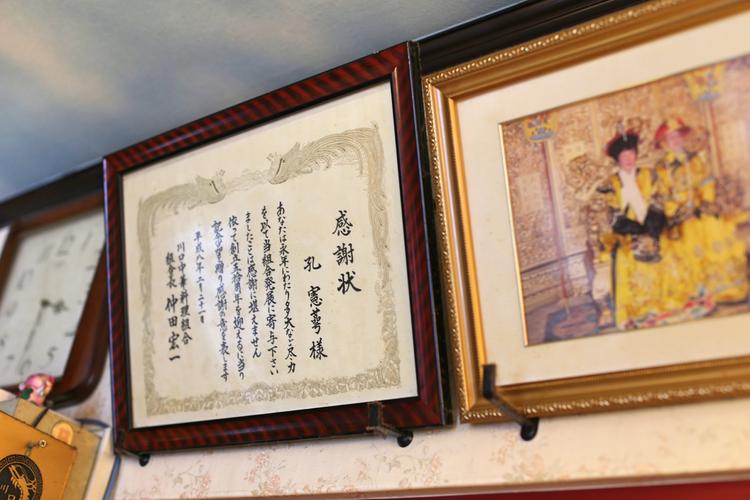 感謝状
孔 憲萼 様
あなたは永年にわたり多大なご尽力
を以て当組合発展に寄与下さい
ましたことは感謝に堪えません
依って創立五拾周年を迎えるに当り
記念品を贈り感謝の意を表します
平成八年 月二十一日
川口中華料理組合
組合長 仲田宏一